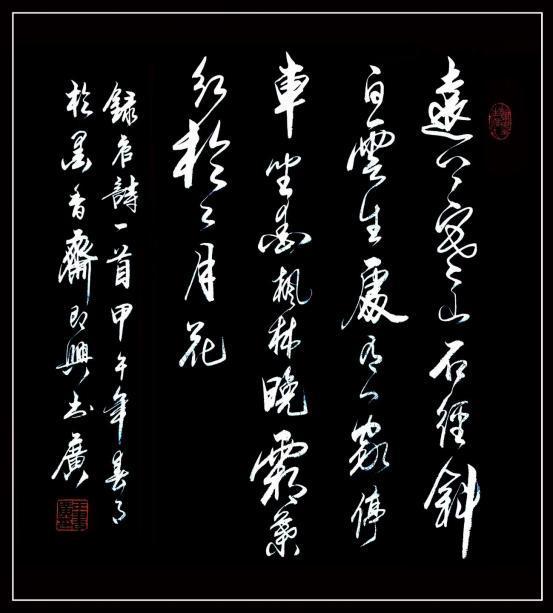 遠上寒山石徑斜
白雲生處有人家停
車坐愛楓林晚霜葉
紅於二月花
錄唐詩一首甲午年春
於墨香齋即興書廣